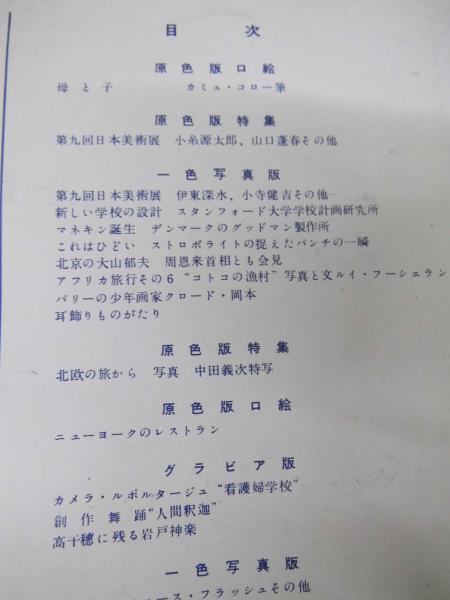 目次
原色版口絵
母と子 カミュ・コロー筆
原色版特集
第九回日本美術展 小糸源太郎、山口蓬春その他
一色写真版
第九回日本美術展 伊東深水、小寺健吉その他
新しい学校の設計 スタンフォード大学学校計画研究所
マネキン誕生 デンマークのグッドマン製作所
これはひどい ストロボライトの捉えたパンチの一瞬
北京の大山郁夫 周恩来首相とも会見
アフリカ旅行その6 “コトコの漁村”写真と文ルイ・フーシェラン
パリーの少年画家クロード・岡本
耳飾りものがたり
原色版特集
北欧の旅から 写真 中田義次特写
原色版口絵
ニューヨークのレストラン
グラビア版
カメラ・ルポルタージュ“看護婦学校”
創作舞踊“人間釈迦”
高千穂に残る岩戸神楽
一色写真版
ース・フラッシュその他